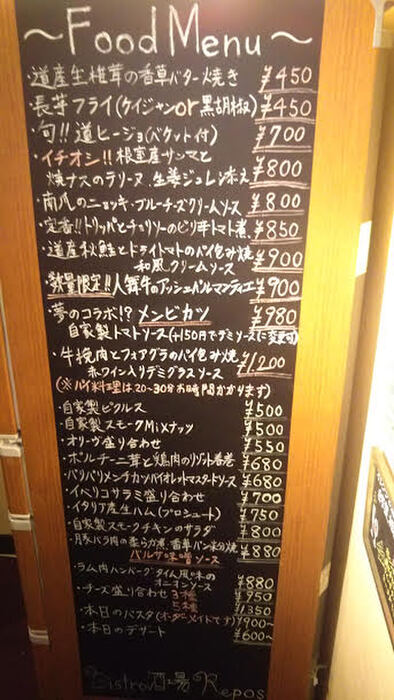 ～Food Menu～
・道産生椎茸の香草バター焼き ¥450
・長芋フライ(ケイジャンor黒胡椒) ¥450
・旬!!道ヒージョ(バケット付) ¥700
・イチオシ!!根室産サンマと
焼ナスのテリーヌ 生姜ジュレ添え ¥800
・南瓜のニョッキ・ブルーチーズクリームソース ¥800
・定番!!トリッパとチョリソーのピリ辛トマト煮 ¥850
・道産秋鮭とドライトマトのパイ包み焼
和風クリームソース ¥900
・数量限定!! 人舞牛のアッシュパルマンティエ ¥900
・夢のコラボ!? メンビカツ ¥980
自家製トマトソース(+150円でデミソースに変更可)
・牛挽肉とフォアグラのパイ包み焼 ¥1,200
赤ワイン入りデミグラスソース
(※パイ料理は20～30分お時間かかります)
・自家製ピクルス ¥500
・自家製スモークMixナッツ ¥500
・オリーヴ盛り合わせ ¥550
・ポルチーニ茸と鶏肉のリゾット春巻 ¥680
・パリパリメンチカツバイオレットマスタードソース ¥680
・イベリコサラミ盛り合わせ ¥700
・イタリア産生ハム(プロシュート) ¥750
・自家製スモークチキンのサラダ ¥800
・豚バラ肉の柔らか煮・香草パン粉焼 ¥880
バルサ味噌ソース
・ラム肉ハンバーグタイム風味の
オニオンソース ¥880
・チーズ盛り合わせ 3種 ¥950
5種 ¥1350
・本日のパスタ(オーダーメイドです) ¥900～
・本日のデザート ¥600～
Bistro酒場Repos